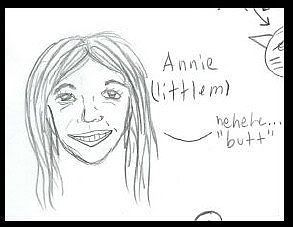 Annie
(littlem)
hehehe...
"butt"